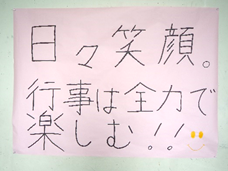 日々笑顔。
行事は全力で
楽しむ!!